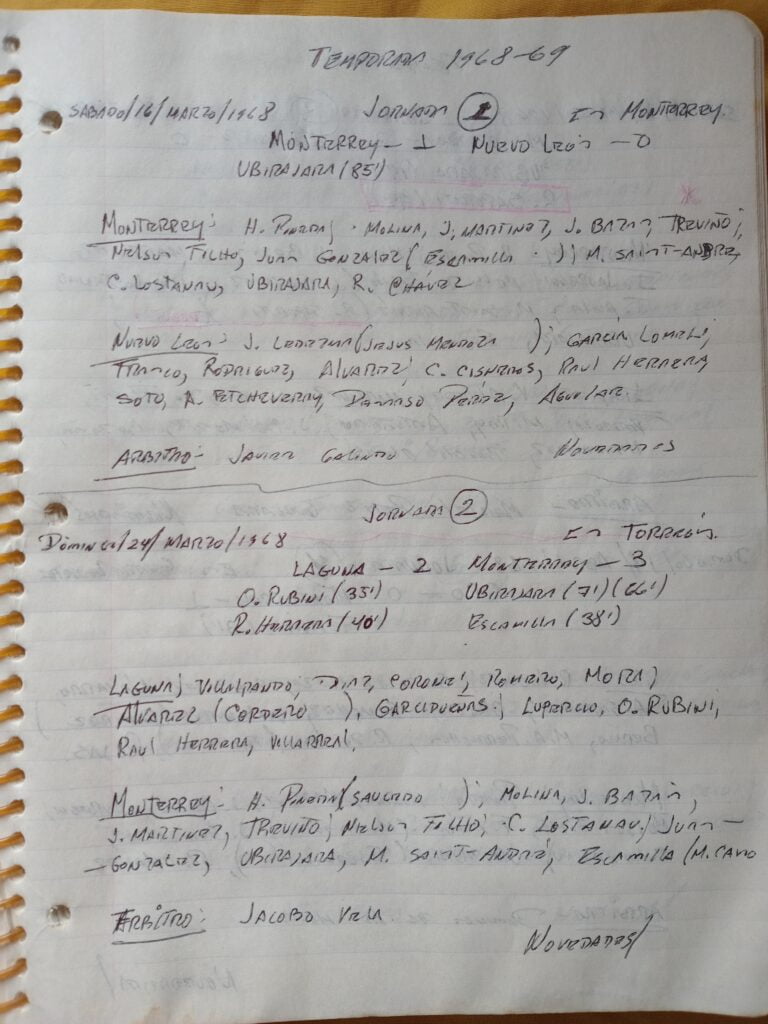 TEMPORADA 1968-69
SABADO/16/MARZO/1968 JORNADA 1 En MONTERREY.
MONTERREY - 1 NUEVO LEÓN - 0
UBIRAJARA (85')
MONTERREY: H. PINEDA; MOLINA, J. MARTINEZ, J. BAZAN, TREVIÑO;
NELSON FILHO, JUAN GONZALEZ (ESCAMILLA ); M. SAINT-ANDRE,
C. LOSTANAU, UBIRAJARA, R. CHÁVEZ
NUEVO LEÓN: J. LEDEZMA (JESUS MENDOZA ); GARCÍA, LOMELI,
FRANCO, RODRIGUEZ, ALVAREZ; C. CISNEROS, RAUL HERRERA,
SOTO, A. ETCHEVERRY, DAMASO PEREZ, AGUILAR.
ARBITRO- JAVIER GALINDO NOVEDADES
JORNADA 2
DOMINGO/24/MARZO/1968 En TORREÓN.
LAGUNA - 2 MONTERREY - 3
O. RUBINI (35') UBIRAJARA (7') (66')
R. HERRERA (40') ESCAMILLA (38')
LAGUNA; VILLALPANDO, DIAZ, CORONEL, ROMERO, MOTA;
ALVAREZ (CORDERO ), GARCIDUEÑAS; LUPERCIO, O. RUBINI,
RAUL HERRERA, VILLARREAL.
MONTERREY: H. PINEDA (SAUCEDO ); MOLINA, J. BAZAN,
J. MARTINEZ, TREVIÑO; NELSON FILHO; C. LOSTANAU; JUAN -
- GONZALEZ, UBIRAJARA, M. SAINT-ANDRÉ, ESCAMILLA (M. CANO
ARBITRO: JACOBO VELA
NOVEDADES/